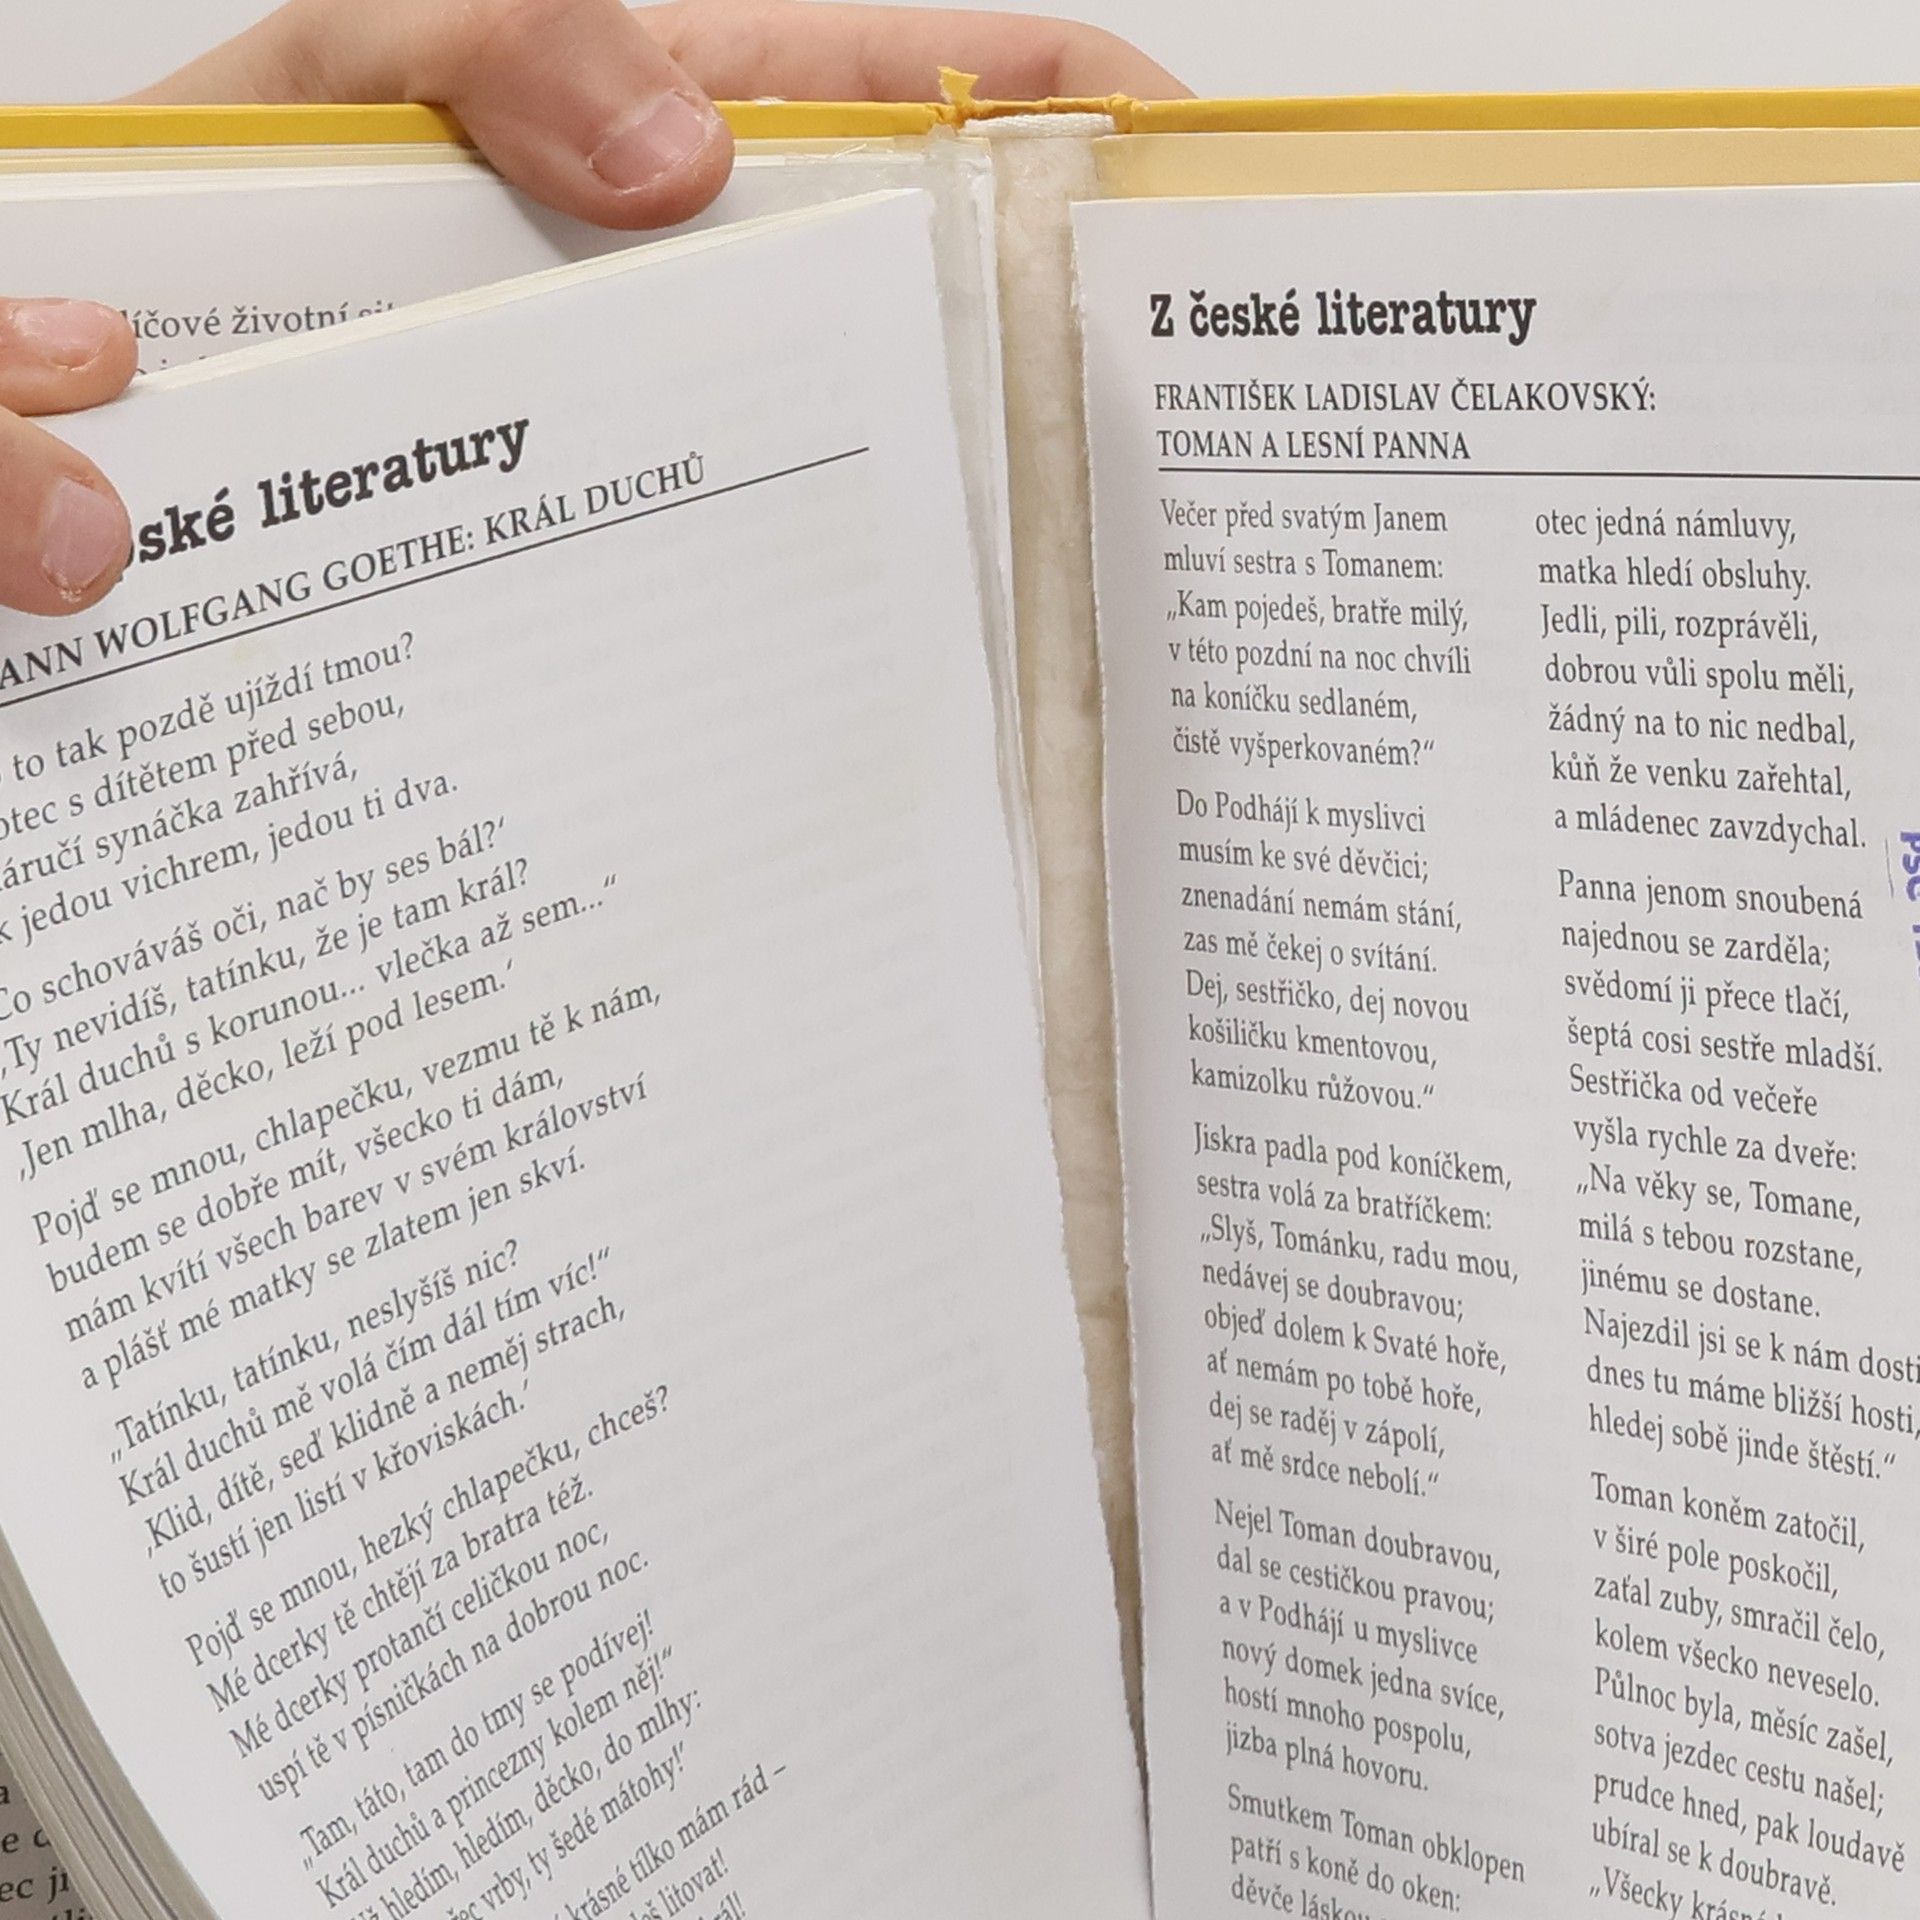 líčové životní
ské literatury
ANN WOLFGANG GOETHE: KRÁL DUCHŮ
to tak pozdě ujíždí tmou?
otec s dítětem před sebou,
áručí synáčka zahřívá,
k jedou vichrem, jedou ti dva.
Co schováváš oči, nač by ses bál?‘
‚Ty nevidíš, tatínku, že je tam král?
Král duchů s korunou... vlečka až sem...“
‚Jen mlha, děcko, leží pod lesem.‘
Pojď se mnou, chlapečku, vezmu tě k nám,
budem se dobře mít, všecko ti dám,
mám kvítí všech barev v svém království
a plášť mé matky se zlatem jen skví.
„Tatínku, tatínku, neslyšíš nic?
Král duchů mě volá čím dál tím víc!“
‚Klid, dítě, seď klidně a neměj strach,
to šustí jen listí v křoviskách.‘
Pojď se mnou, hezký chlapečku, chceš?
Mé dcerky tě chtějí za bratra též.
Mé dcerky protančí celičkou noc,
uspí tě v písničkách na dobrou noc.
„Tam, táto, tam do tmy se podívej!
Král duchů a princezny kolem něj!“
hledím, hledím, děcko, do mlhy:
vrby, ty šedé mátohy!‘
krásné tílko mám rád –
litovat!
Z české literatury
FRANTIŠEK LADISLAV ČELAKOVSKÝ:
TOMAN A LESNÍ PANNA
Večer před svatým Janem
mluví sestra s Tomanem:
„Kam pojedeš, bratře milý,
v této pozdní na noc chvíli
na koníčku sedlaném,
čistě vyšperkovaném?“
Do Podhájí k myslivci
musím ke své děvčici;
znenadání nemám stání,
zas mě čekej o svítání.
Dej, sestřičko, dej novou
košiličku kmentovou,
kamizolku růžovou.“
Jiskra padla pod koníčkem,
sestra volá za bratříčkem:
„Slyš, Tománku, radu mou,
nedávej se doubravou;
objeď dolem k Svaté hoře,
ať nemám po tobě hoře,
dej se raděj v zápolí,
ať mě srdce nebolí.“
Nejel Toman doubravou,
dal se cestičkou pravou;
a v Podhájí u myslivce
nový domek jedna svíce,
hostí mnoho pospolu,
jizba plná hovoru.
Smutkem Toman obklopen
patří s koně do oken:
děvče láskou
otec jedná námluvy,
matka hledí obsluhy.
Jedli, pili, rozprávěli,
dobrou vůli spolu měli,
žádný na to nic nedbal,
kůň že venku zařehtal,
a mládenec zavzdychal.
Panna jenom snoubená
najednou se zarděla;
svědomí ji přece tlačí,
šeptá cosi sestře mladší.
Sestřička od večeře
vyšla rychle za dveře:
„Na věky se, Tomane,
milá s tebou rozstane,
jinému se dostane.
Najezdil jsi se k nám dosti
dnes tu máme bližší hosti,
hledej sobě jinde štěstí.“
Toman koněm zatočil,
v širé pole poskočil,
zaťal zuby, smračil čelo,
kolem všecko neveselo.
Půlnoc byla, měsíc zašel,
sotva jezdec cestu našel;
prudce hned, pak loudavě
ubíral se k doubravě.
„Všecky